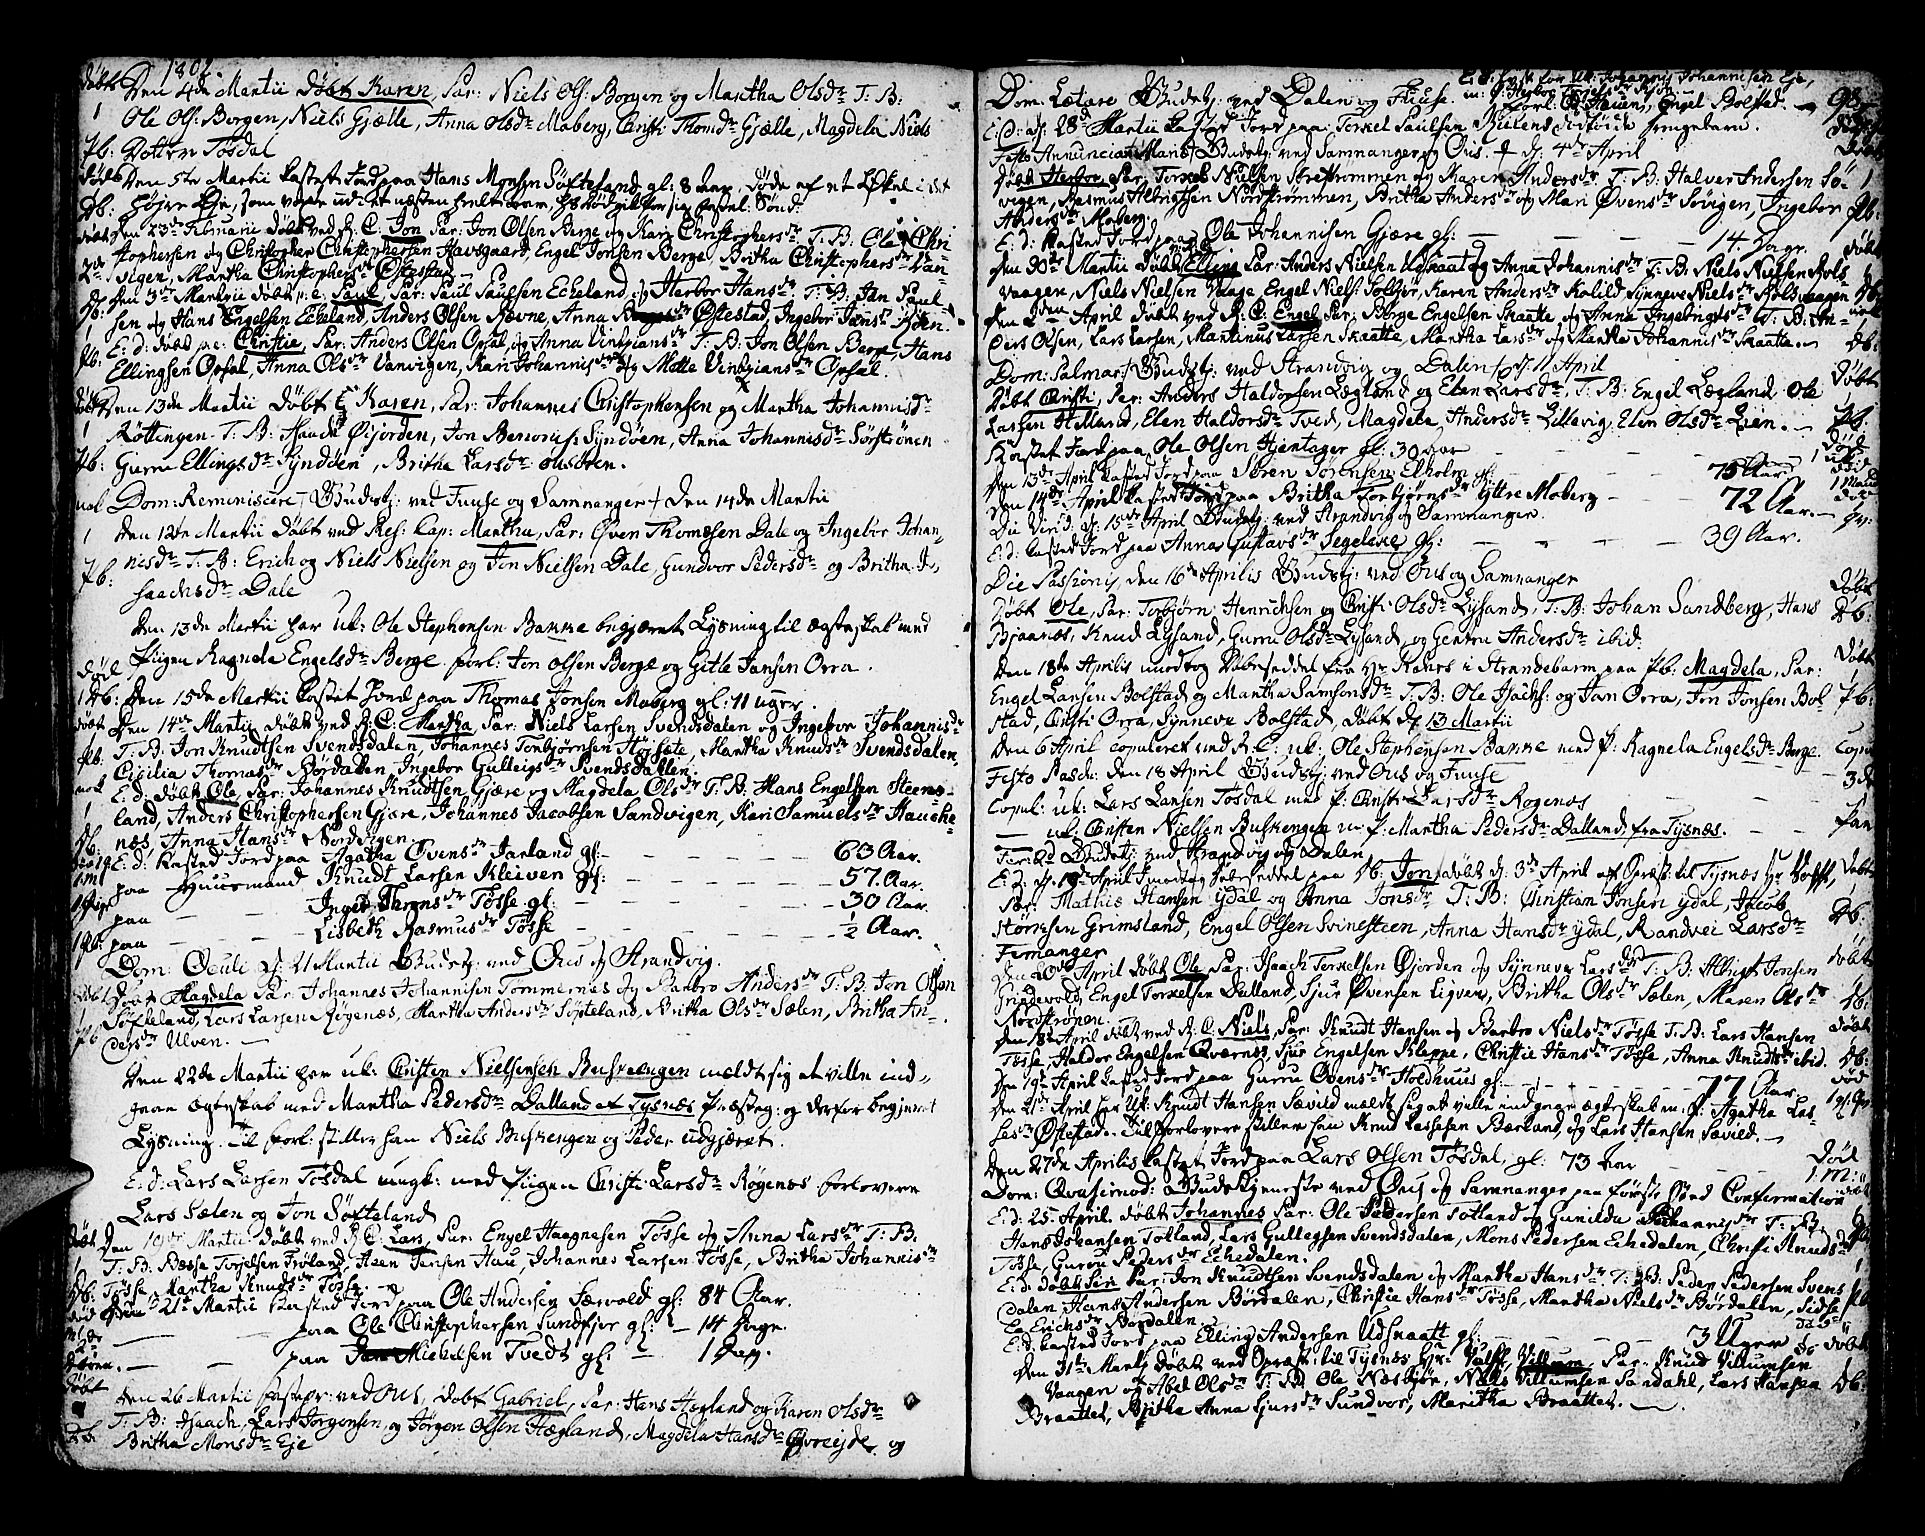 1802
døbt Den 4de Martii Døbt Karen, Par: Niels Ols: Borgen og Martha Olsdr T: B:
1 Ole Ols: Borgen, Niels Gjælle, Anna Olsdr Moberg, Christi Thomsdr Gjælle, Magdela Niels
Pb: Dotter Tøsdal
død Den 5te Martii kastet Jord paa Hans Monsen Søfteland gl: 8 Aar, døde af et
Db: høyre Øye, som
døbt Den 23de Febuarii døbt ved R: C: Jon Par: Jon Olsen Berge og Kari Christophersdr T: B: Ole Chri-
stophersen og Christopher Christophersen Havsgaard, Engel Jonsen Berge, Britha Christophersdr Van-
vigen, Martha Christophersdr Østestad
Db: Den 3de Martii døbt p: e: Paul, Par: Paul Paulsen Echeland og Herbor Hansdr T: B: Jan Paul-
sen og Hans Engelsen Echeland, Anders Olsen Revne, Anna Østestad, Ingebor Jansdr
1 E: d: døbt p: e: Christie, Par: Anders Olsen Opsal og Anna Vintziansdr T: B: Jon Olsen Berge, Hans
Pb: Ellingsen Opsal, Anna Olsdr Vanvigen, Kari Johannisdr og Mette Vintziansdr Opsal.
døbt Den 13de Martii Døbt Karen, Par: Johannes Christophersen og Martha Johannisdr
1 Røttingen T: B: Isaach Øijorden, Jon Benonis: Sÿndöen, Anna Johannisdr Sörströnen
Pb: Gurru Ellingsdr Sÿndöen, Britha Larsdr
Dom: Reminiscere Gudstj: ved Fuuse og Samnanger den 14de Martii
1 Den 12te Martii Døbt ved Res: Cap: Martha, Par: Øven Thomesen Dale og Ingebor Johan-
Pb: nisdr T: B: Erich og Niels Nielsen og Jon Nielsen Dale, Gundvor Pedersdr og Britha I-
saachsdr Dale
Den 13de Martii har uk: Ole Stephensen Banke begjæret Lysning til Ægteskab med
Pigen Ragnela Engelsdr Berge. forl: Jon Olsen Berge og Gitle Jansen Orra.
død
1 Db: Den 15de Martii kastet Jord paa Thomas Jonsen Moberg gl: 11 uger.
døbt Den 14de Martii døbt ved R: C: Martha Par: Niels Larsen Svendsdalen og Ingebor Johannisdr
Pb: T: B: Jon Knudtsen Svendsdalen, Johannes Torbjørnsen Hofsete, Martha Knudsdr Svendsdalen,
Cicilia Thomasdr Bördalen, Ingebor Gulleigsdr Svendsdallen
E: d: døbt Ole, Par: Johannes Knudtsen Gjære og Magdela Olsdr T: B: Hans Engelsen Steens-
1 land, Anders Christophersen Gjære, Johannes Jacobsen Sandvigen, Kari Samuelsdr Hauche-
Db: næs, Anna Hansdr Nordvigen
E: d: kasted Jord paa Agatha Øvensdr Jarland gl: — — — 63 Aar.
1 M paa Huusmand Knudt Larsen Kleiven gl: — — — 57. Aar.
paa — — Inger Thronsdr Tösse gl: — — — 30 Aar.
1 Pb: paa — — Lisbeth Rasmusdr Tösse — — — ½ Aar.
Dom: Oculi d: 21 Martii Gudstj: ved Ous og Strandvig.
døbt Døbt Magdela Par: Johannes Johannisen Tommernæs og Barbro Andersdr T: B: Jon Olsen
1 Söfteland, Lars Larsen Rögenæs, Martha Andersdr Söfteland, Britha Olsdr Sælen, Britha An-
Pb dersdr Ulven. —
Den 22de Martii har uk: Christen Nielsensch Buskrengen meldt sig at ville ind-
gaae Ægteskab med Martha Pedersdr Dalland af Tysnæs Præsteg: og derfor begjæret
Lysning. til forl: stiller han Niels Buskengen og Peder Udgjæret.
E: d: Lars Larsen Tösdal ungk: med Pigen Christi Larsdr Rögenæs forlovere
Lars Sælen og Jon Söfteland
døbt Den 19de Martii døbt ved R: C: Lars, Par: Engel Haagnesen Tösse og Anna Larsdr T: B:
T: B: Besse Torjelsen Tröland, Steen Jensen Hau, Johannes Larsen Tösse, Britha Johannisdr
Db: Tösse, Martha Knudsdr Tösse.
død Den 21de Martii kasted Jord paa Ole Andersen Sævold gl: 84 Aar.
paa Ole Christophersen Sundfjor gl: — 14 Dage.
paa Michelsen Tvedt gl: — 1 Dag.
døbt Den 26 Martii fastepr: ved Ous, Døbt Gabriel, Par: Hans Hegland og Karen Olsdr
T: B: Isaach, Lars Jörgensen og Jörgen Olsen Hægland, Magdela Hansdr og
Db: Britha Monsdr Eje
E: d: lyst for Uk: Johannis Johannisen Eje,
Dom: Lætare Gudstj: ved Dalen og Fuuse.
forl: Engel Bolstad. — 98
E: D: d: 28de Martii kasted Jord paa Torkel Paulsen
Festo Annunciat: Mariæ Gudstj: ved Samnanger og Ous. d: 4de April
Døbt Herbor, Par: Torkel Nielsen Strettommen og Karen Andersdr T: B: Halver Andersen Sö- 1
vigen, Rasmus Albrigtsen Nordströmmen, Britha Andersdr og Mari Øvensdr Sövigen, Ingebor Pb:
Andersdr Moberg.
E: d: Kasted Jord paa Ole Johannisen Gjære gl: — — — 14 Dage. døbt
Den 30de Martii døbt Elling Par: Anders Nielsen Udskaat og Anna Johannisdr T: B: Niels Nielsen Rols-
vaagen, Niels Nielsen Vaage Engel Niels: Solsör, Karen Andersdr Kolild Synneve Nielsdr Rolsvaagen Db:
Den 2den April døbt ved R: C: Engel Par: Börge Engelsen Skaatte og Anna Ingebrigtsdr T: B: An-
ders Olsen, Lars Larsen, Martinus Larsen Skaatte, Martha Larsdr og Martha Johannisdr Skaatte. — Db:
Dom: Palmar: Gudstj: ved Strandvig og Dalen d: 11 April døbt
Døbt Christi, Par: Anders Haldorsen Lægland og Elen Larsdr, T: B: Engel Lægland Ole 1
Larsen Helland, Elen Haldorsdr Tved, Magdela Andersdr Lillevig, Elen Olsdr Lien. — Pb:
Kastet Jord paa Ole Olsen Hjentager gl: 30 Aar død
Den 13de April kasted Jord paa Sören Sörensen Elholm gl: — 75 Aar
Den 14de April kasted Jord paa Britha Torbjörnsdr Yttre Moberg — — 72 Aar. —
Die Virid: d: 15de April Gudstj: ved Strandvig og Samnanger.
E: d: kasted Jord paa Anna Gustavsdr Segeleve gl: — — — 39 Aar.
Die Passionis, den 16de Aprilis Gudstj: ved Ous og Samnanger
Døbt Ole, Par: Torbjörn Henrichsen og Christi Olsdr Lysand, T: B: Johan Sandberg, Hans Db:
Bjaanæs, Knud Lysand, Gurru Olsdr Lysand og Gertru Andersdr ibid:
Den 18de Aprilis modtog Døbeseddel fra Hr Rahrs i Strandebarm paa Pb: Magdela, Par: døbt
Engel Larsen Bolstad og Martha Samsonsdr T: B: Ole Isachs: og Jan Orra, Jon Jonsen Bol- Pb:
stad, Christi Orra, Synneve Bolstad, døbt d: 13 Martii
Den 6 April copuleret ved R: C: uk: Ole Stephensen Banke med P: Ragnela Engelsdr Berge. copul
Festo Pasch: den 18 April Gudstj: ved Ous og Fuuse — — 3 de
Copul: uk: Lars Larsen Tösdal med P: Christi Larsdr Rögenæs
— uk: Christen Nielsen Buskengen m: P: Martha Pedersdr Dalland fra Tysnæs. — — Par
Fer: 2d Gudstj: ved Strandvig og Dalen
E: D: d: 19de April modtog Døbeseddel paa Db: Jon døbt d: 3de April af Præst: til Tysnæs Hr Volff, døbt
Par: Mathis Hansen Ydal og Anna Jonsdr T: B: Christian Jonsen Ydal, Jacob
Störksen Grimsland, Engel Olsen Svinesteen, Anna Hansdr Ydal, Randvei Larsdr Db:
Femanger
Den 20de April døbt Ole Par: Isaach Torkelsen Øjorden og Synneve Larsdr T: B: Albrigt Jonsen døbt
Grindevold, Engel Torkelsen Dalland, Sjur Øvensen Ligver, Britha Olsdr Sælen, Maren Olsdr Db:
Nordströnen
Den 18de April døbt ved R: C: Niels Par: Knudt Hansen og Barbro Nielsdr Tösse T: B: Lars Hansen døbt
Tösse, Haldor Engelsen Qværnæs, Sjur Engelsen Kleppe, Christie Hansdr Tösse, Anna Knudtsdr ibid. Db:
Den 19de April kasted Jord paa Gurru Øvensdr Holdhuus gl: — — — 77 Aar. død
Den 21de April har Uk: Knudt Hansen Sævild meldt sig at ville indgaae Ægteskab m: P: Agatha Las-
sesdr Østestad. Til Forlovere stiller han Knud Lassesen Bærland, og Lars Hansen Sævild. —
Den 27de Aprilis kastet Jord paa Lars Olsen Tösdal, gl: 73 Aar — — Død
1 M:
Dom: Qvasimod: Gudstjeneste ved Ous og Samnanger paa første Sted Confirmation
E: d: 25. April. døbt Johannes Par: Ole Pedersen Totland og Gunilda Johannisdr T: B:
Hans Johansen Totland, Lars Gullegsen Svendsdalen, Mons Pedersen Echedalen, Christi Knudsdr
Tösse, Gurou Pedersdr Echedalen.
E: d: døbt Siri Par: Jon Knudtsen Svendsdalen og Martha Hansdr T: B: Peder Pedersen Svens
dalen, Hans Andersen Bördalen, Christie Hansdr Tösse, Martha Nielsdr Bördalen, Sidse
Erichsdr Bördalen
E: d: kasted Jord paa Elling Andersen Udskaatt gl: — — 3 Uger døbt
Den 31te Martii døbt ved Præst: til Tysnæs Hr: Volff, Villum, Par: Knud Villumsen
Vaagen og Abel Olsdr T: B: Ole Næsbjör, Niels Villumsen Sandahl, Lars Hansen Db:
Braattet, Britha Anna Sjursdr Sundvor, Maritha Braattet. —